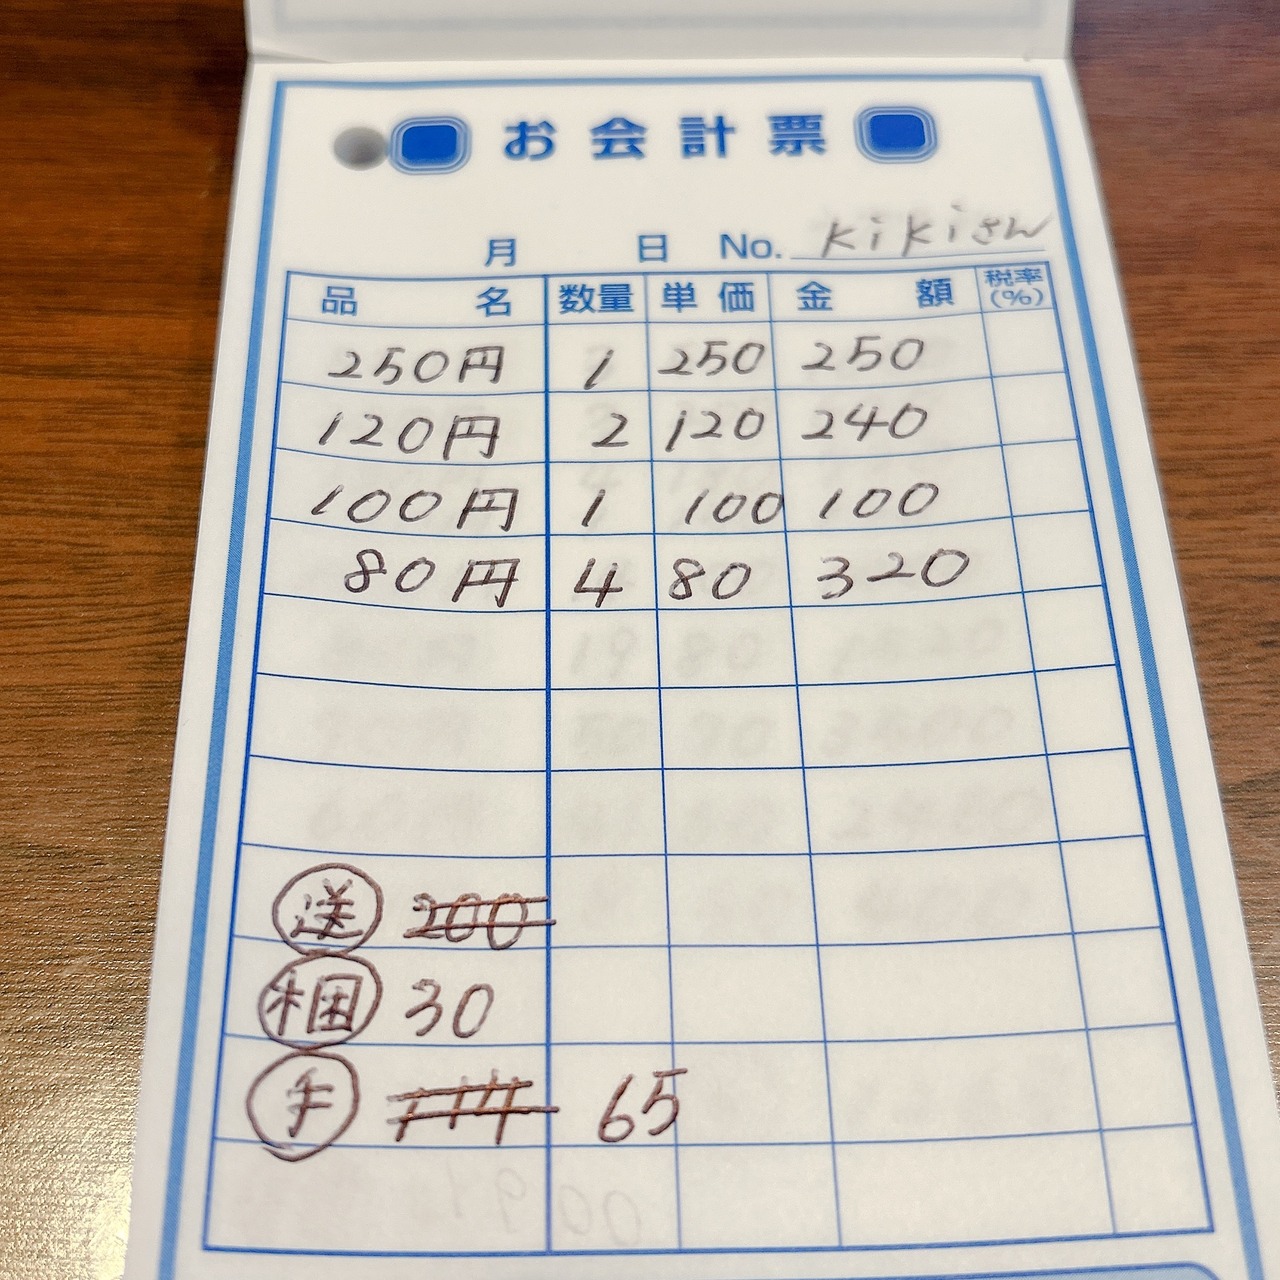 お会計票
月 日 No. kikiさん
品名 数量 単価 金額 税率(%)
250円 1 250 250
120円 2 120 240
100円 1 100 100
80円 4 80 320
送 200
梱 30
手 65